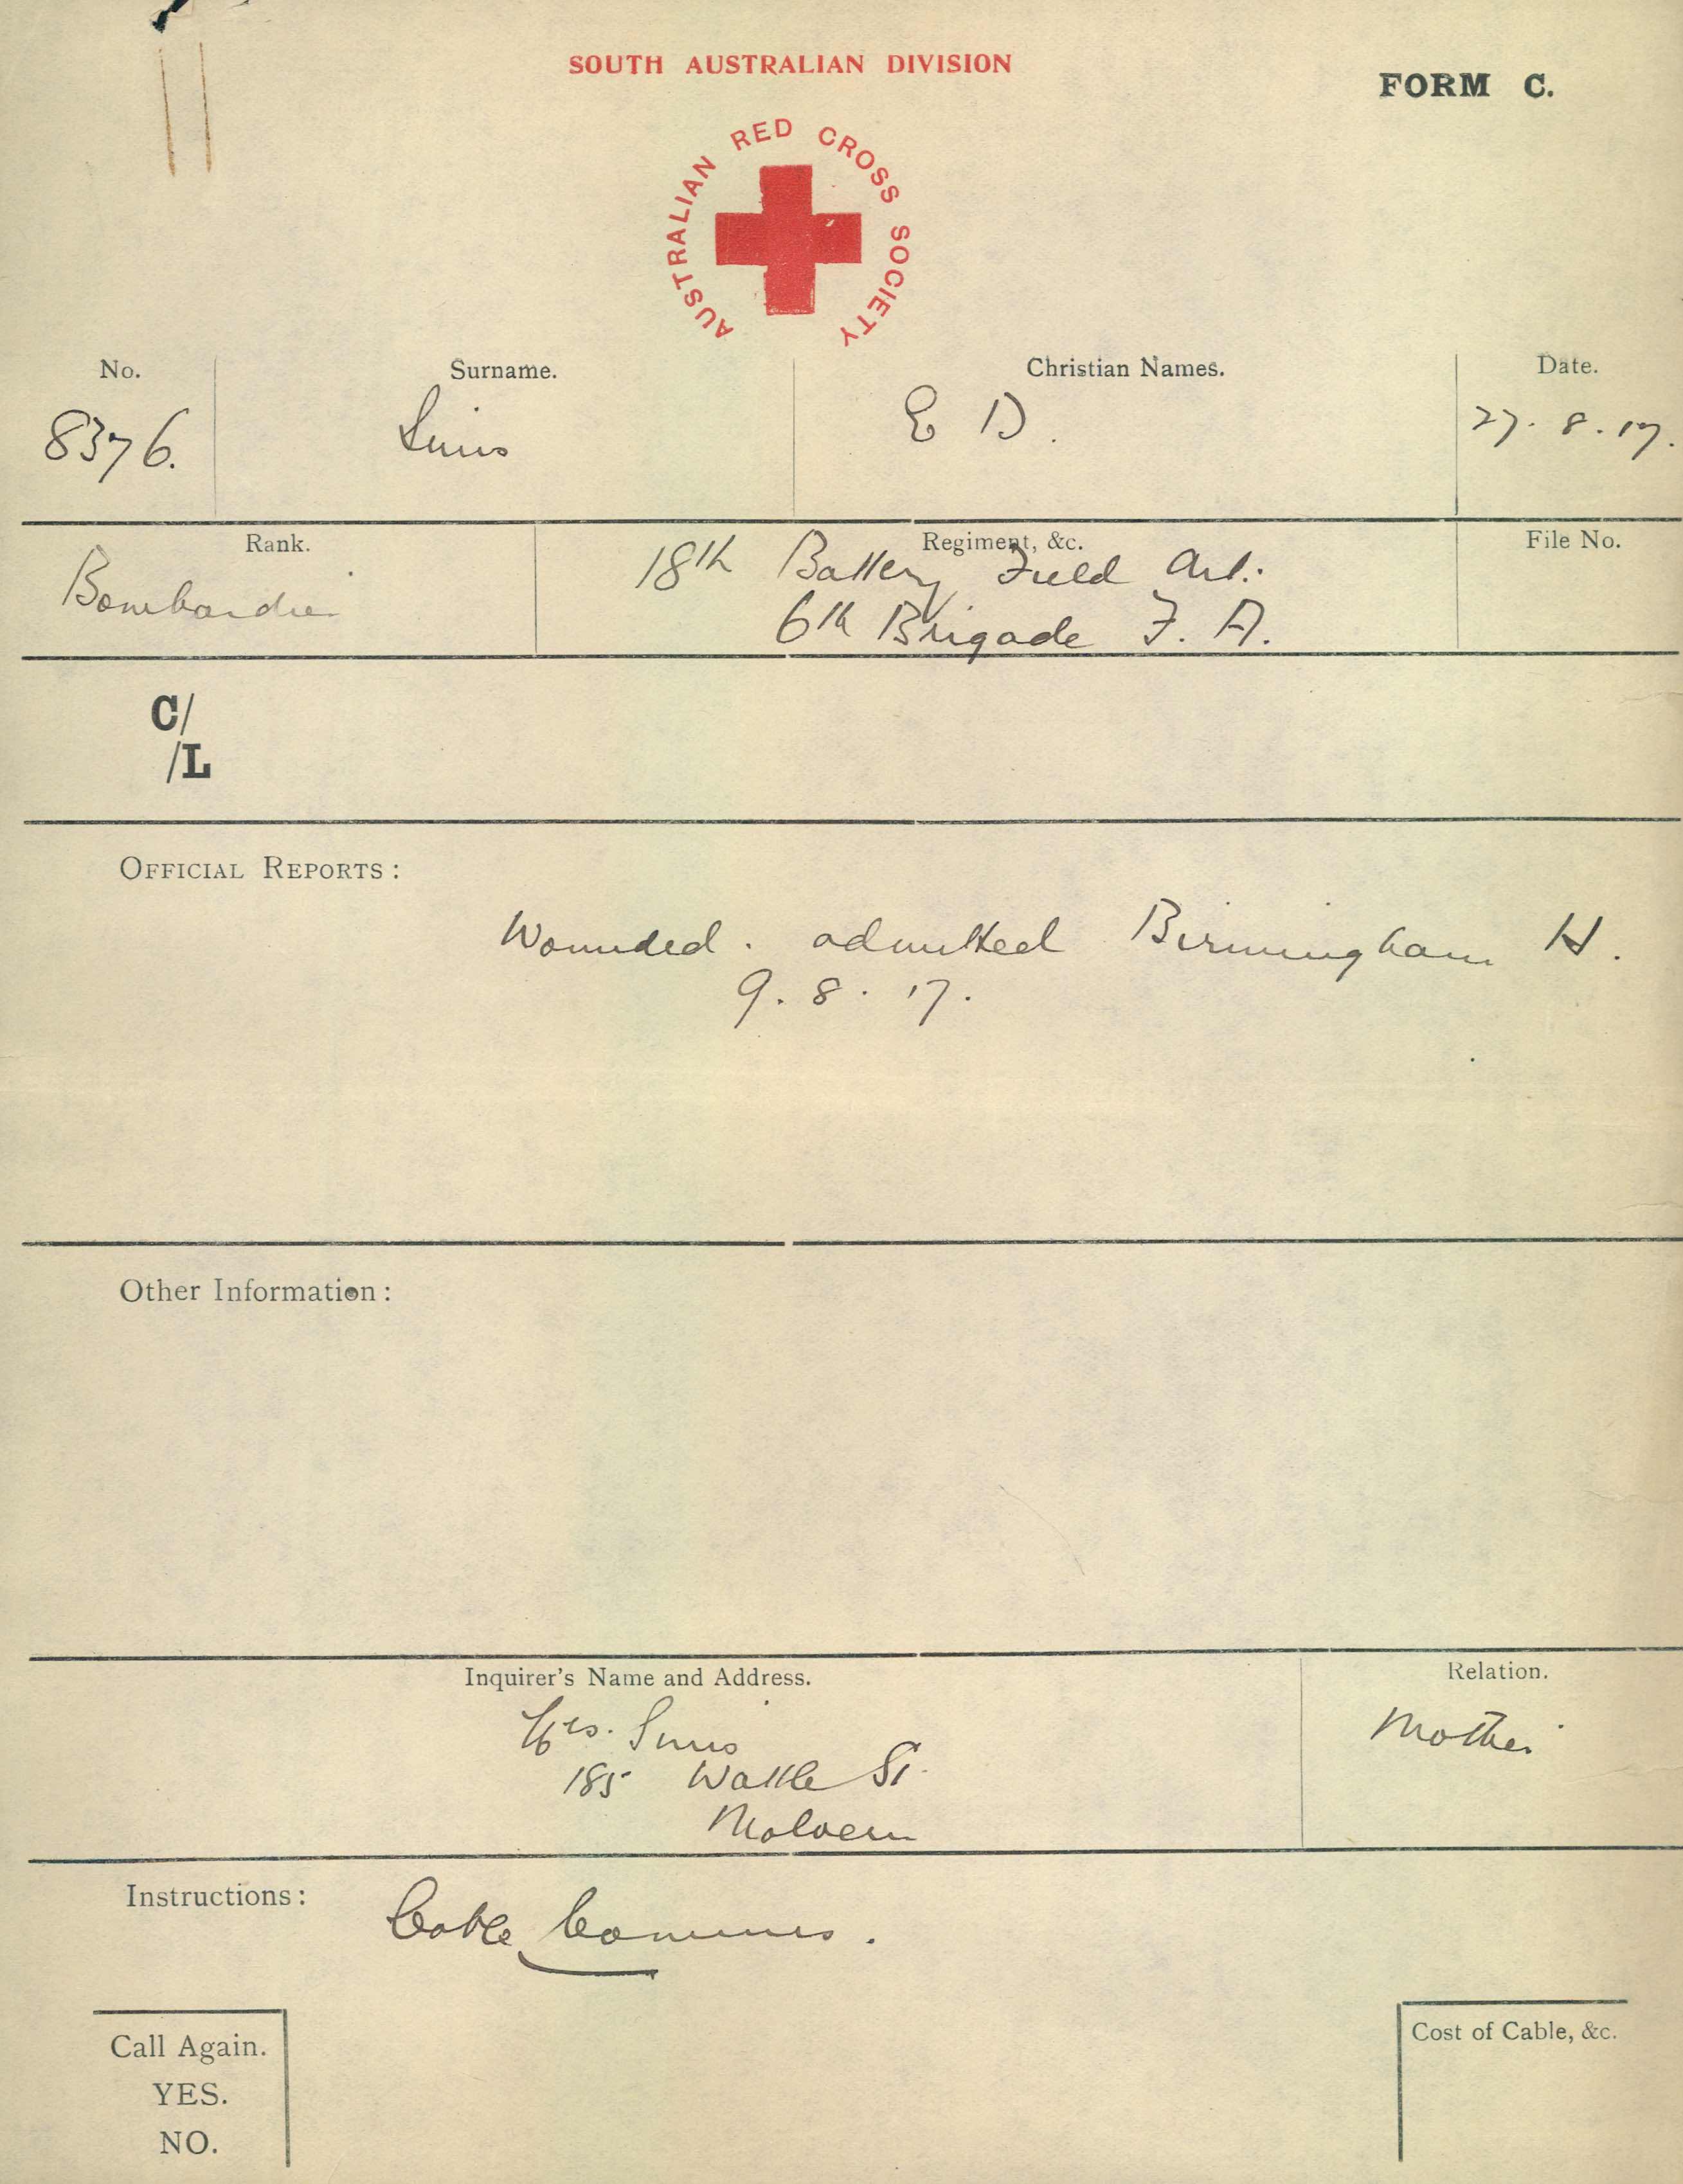 SOUTH AUSTRALIAN DIVISION
FORM C.
AUSTRALIAN RED CROSS SOCIETY
No. Surname. Christian Names. Date.
8376. Sims E D. 27.8.17.
Rank. Regiment, &c. File No.
Bombardier 18th Battery Field Art.
6th Brigade F. A.
C/
/L
OFFICIAL REPORTS:
Wounded. admitted Birmingham H.
9.8.17.
Other Information:
Inquirer's Name and Address. Relation.
Mrs. Sims Mother
185 Wattle St.
Malvern
Instructions: Cable Commrs.
Call Again.
YES.
NO.
Cost of Cable, &c.